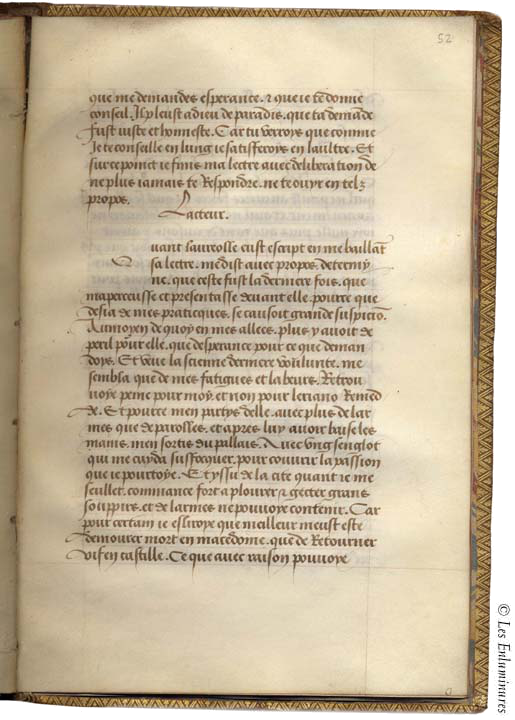 52
que me demandes esperance. & que ie te dōne
conseil. Il pleust a dieu de paradis. que ta demāde
fust iuste et honneste. Car tu verroys que comme
Je te conseille en lung ie satisferoys en laultre. Et
sur ce poinct ie finis ma lectre avec deliberation de
ne plus iamais te Respondre. ne te ouyr en telz
propos.
Lacteur.
uant laureolle eust escript en me baillāt
sa lectre. me dist avec propos determy
ne. que ceste fust la derniere fois. que
mapercusse et presentasse devant elle. pource que
desia de mes practicques. se causoit grande suspiciō.
Au moyen de quoy en mes allees. plus y avoit de
peril pour elle. que desperance pour ce que deman
doys. Et veue la scienne derniere voulunte. me
sembla que de mes fatigues et labeurs. Retrou
voye peine pour moy. et non pour leriano Remed
de. Et pource men partys delle. avec plus de lar
mes que de parolles. et apres luy avoir baise les
mains. men sortis du pallais. Avec ung senglot
qui me cuyda suffocquer. pour couvrir la passion
que ie pourtoye. Et yssu de la cite quant ie me
seullet. commance fort a plourer & gecter grans
souppirs. et de larmes ne pouvoye contenir. Car
pour certain ie eslisoye que meilleur meust este
demourer mort en macedoine. que de Retourner
vif en castille. Ce que avec raison pouvoye
© Les Enluminures